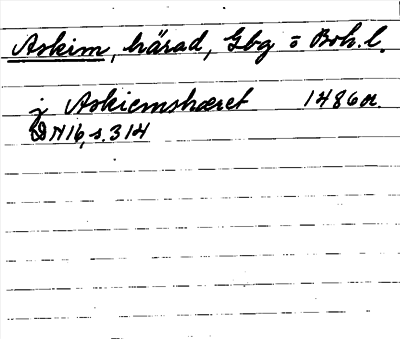 Askim, härad, Gbg o Boh. l.
j Askiemshæret 1486 or.
DN 16, s. 314